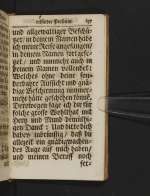 reisender Persohn. 197
und allgewaltiger Beschü-
tzer/ in deinem Namen hab
ich meine Reise angefangen/
in deinem Namen fortgese-
tzet/ und nunmehr auch in
deinem Namen vollendet:
Welches ohne deine sons-
derbahre Aufsicht und gnä-
dige Beschirmung nimmer-
mehr hätte geschehen können.
Derowegen sage ich dir für
solche grosse Wohlthat mit
Hertz und Mund demüthi-
gen Danck: Und bitte dich
dabey inbrünstig/ daß du
allezeit ein gnädig wachen-
des Auge auf mich haben/
und meinen Beruff noch
fer-